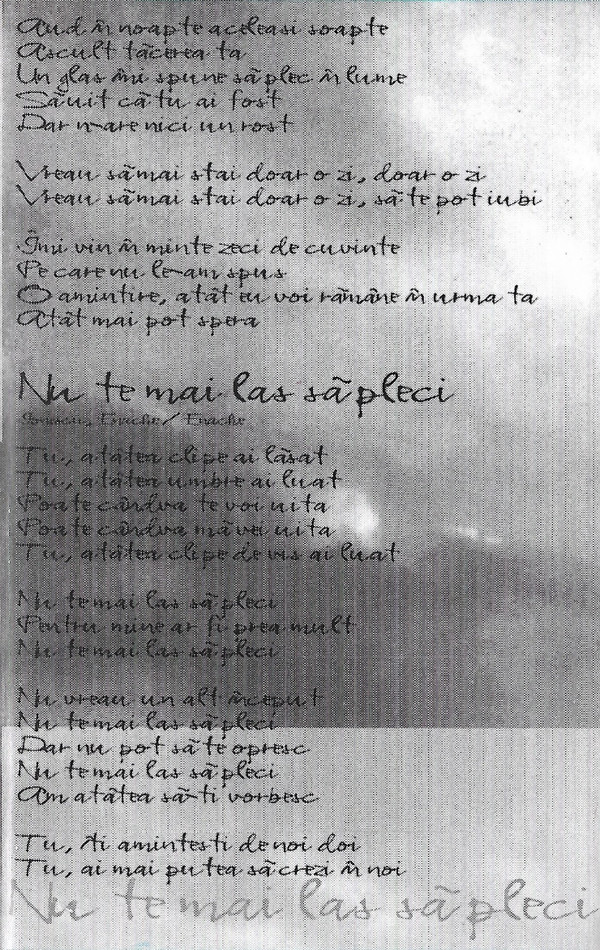 Aud în noapte aceleasi soapte
Ascult tăcerea ta
Un glas îmi spune să plec în lume
Să uit că tu ai fost
Dar n-are nici un rost
Vreau să mai stai doar o zi, doar o zi
Vreau să mai stai doar o zi, să te pot iubi
Îmi vin în minte zeci de cuvinte
Pe care nu le-am spus
O amintire, atât eu voi rămâne în urma ta
Atât mai pot spera
Nu te mai las să pleci
Enache / Enache
Tu, atâtea clipe ai lăsat
Tu, atâtea umbre ai luat
Poate cândva te voi uita
Poate cândva mă vei uita
Tu, atâtea clipe de vis ai luat
Nu te mai las să pleci
Pentru mine ar fi prea mult
Nu te mai las să pleci
Nu vreau un alt început
Nu te mai las să pleci
Dar nu pot să te opresc
Nu te mai las să pleci
Am atâtea să-ti vorbesc
Tu, îti amintesti de noi doi
Tu, ai mai putea să crezi în noi
Nu te mai las să pleci